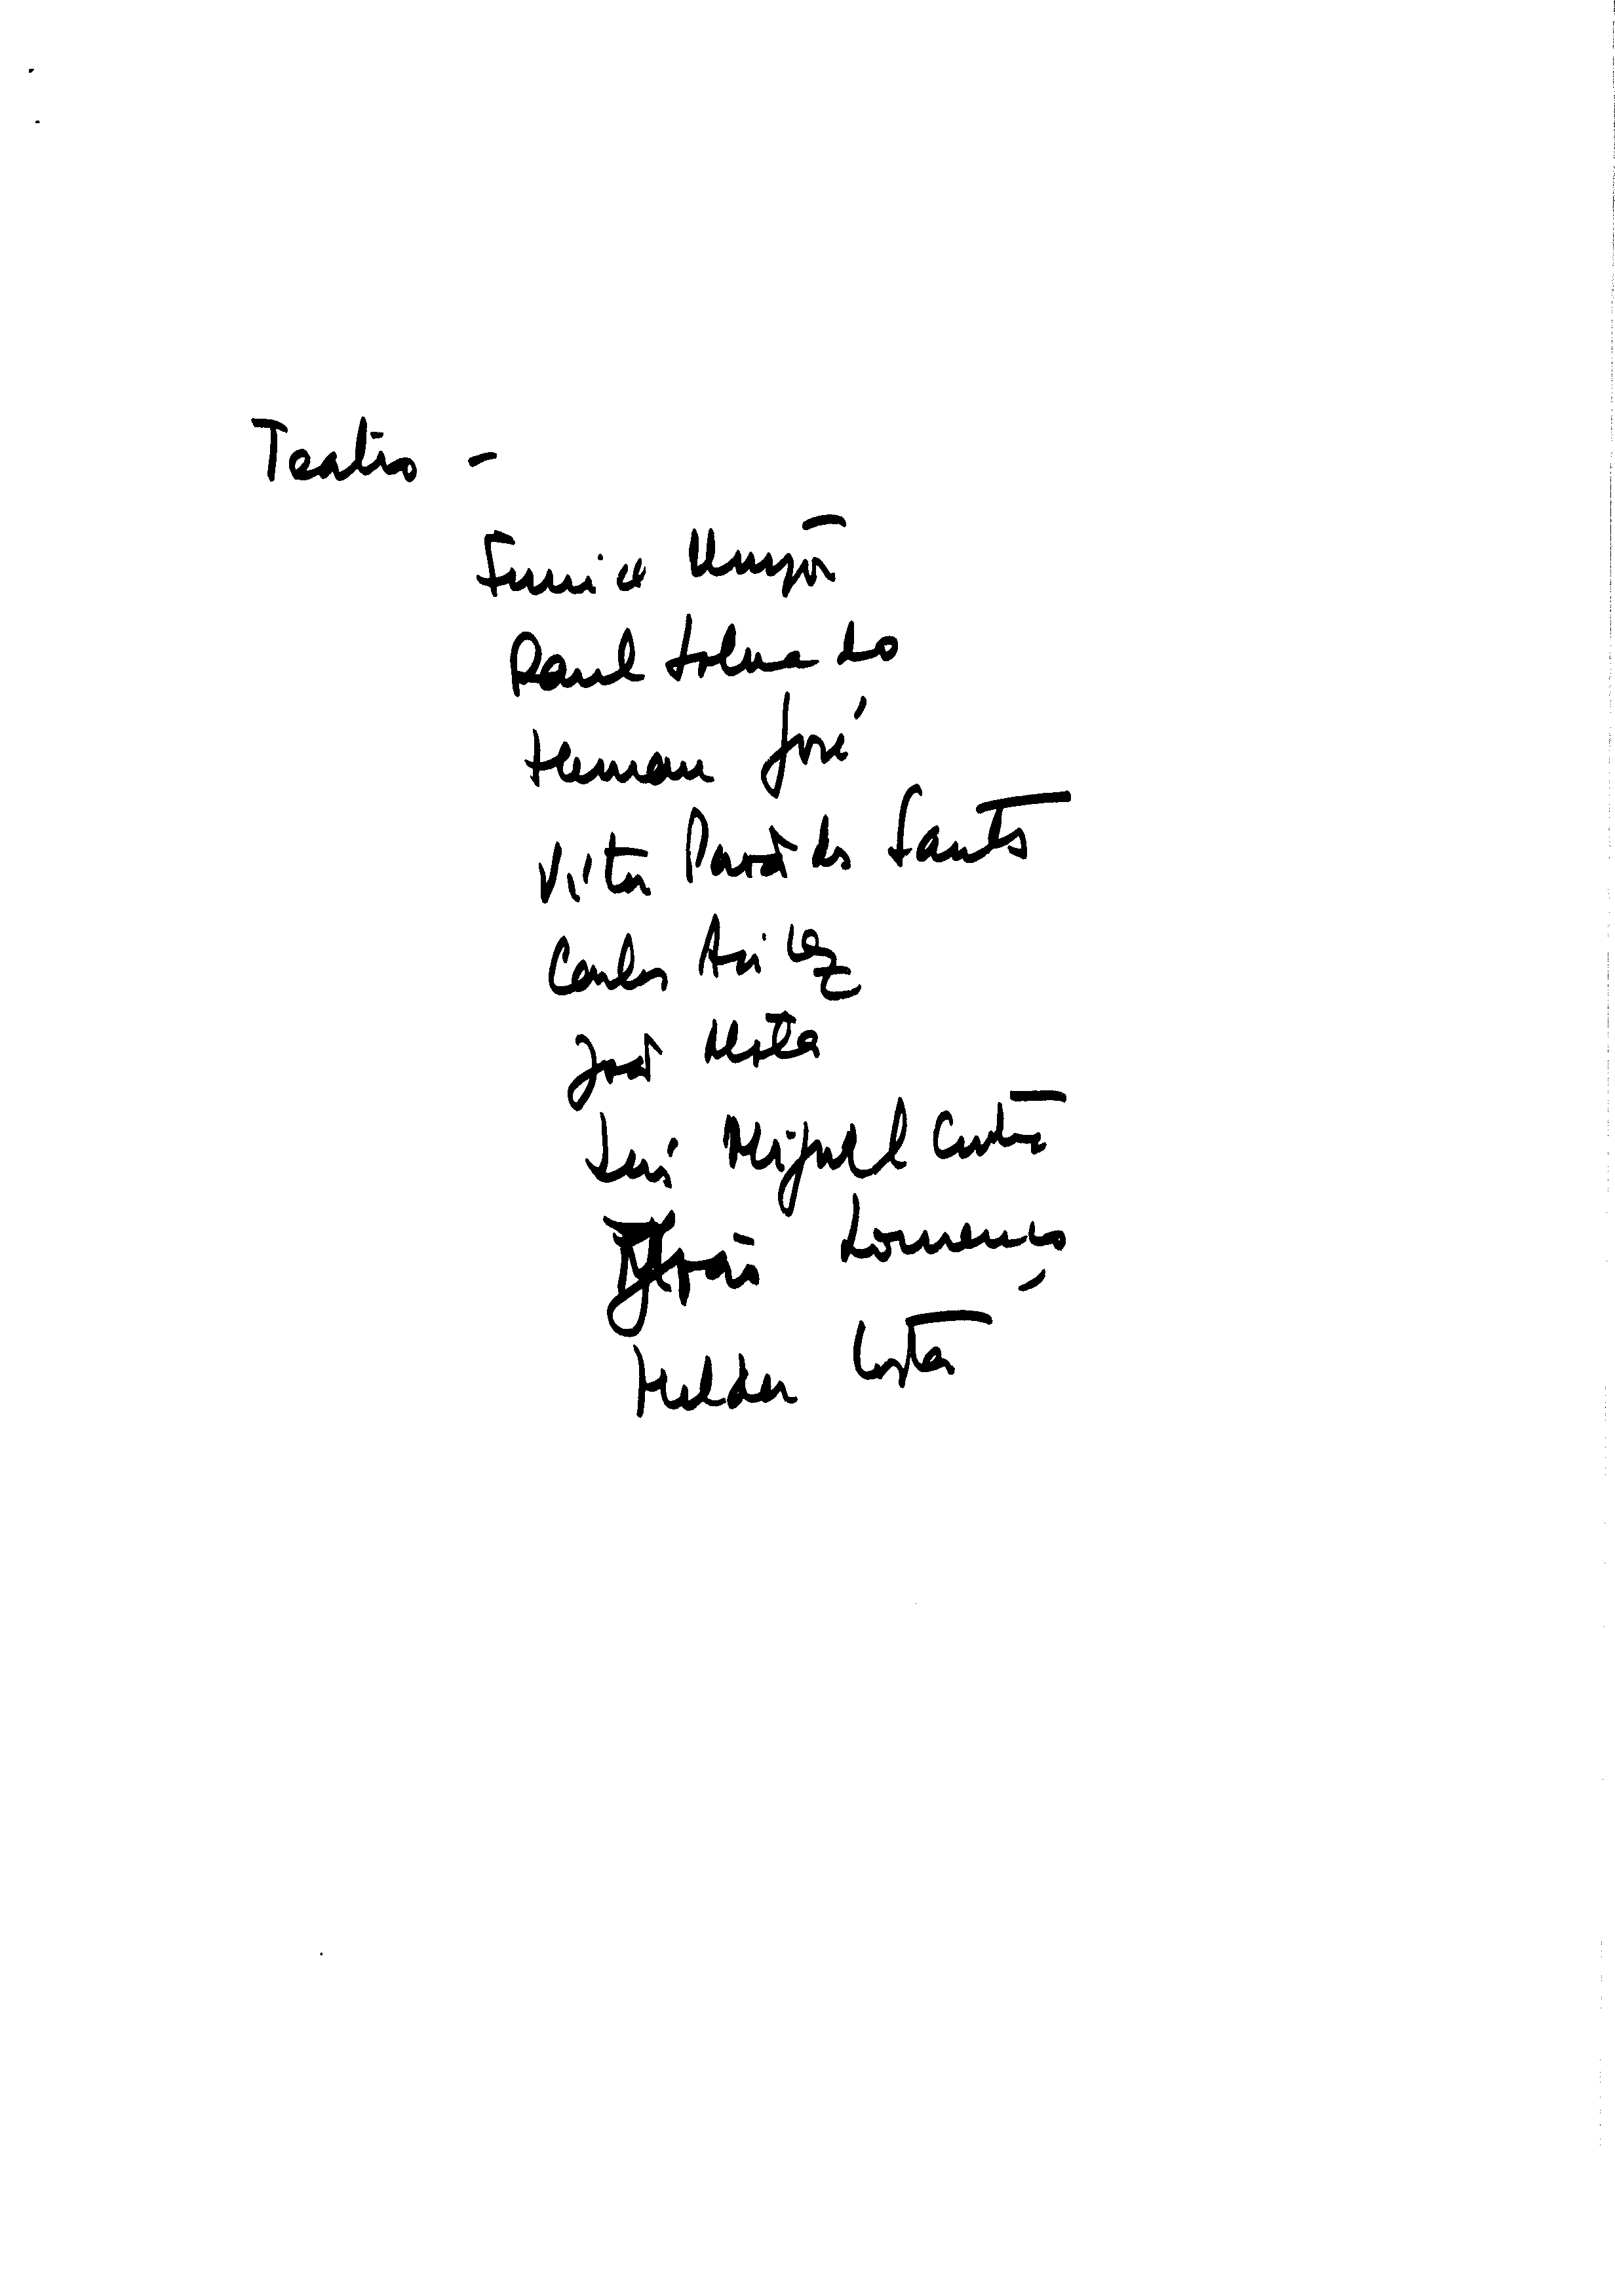 Teatro -
Eunice Muñoz
Raul Solnado
Herman José
Vitor Pavão dos Santos
Carlos Avilez
José Mota
Luis Miguel Cintra
João Lourenço
Helder Costa